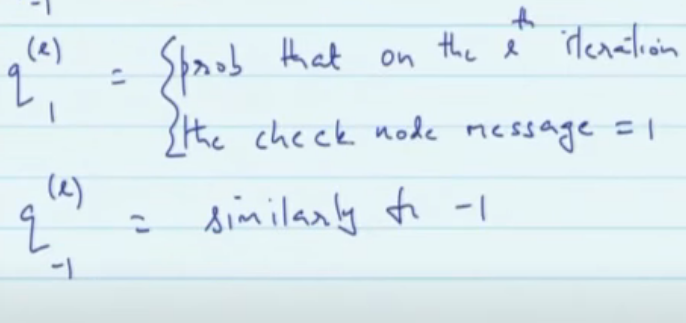 -1
q_1^(l) = { prob that on the l^th iteration
the check node message = 1
q_-1^(l) = similarly fr -1